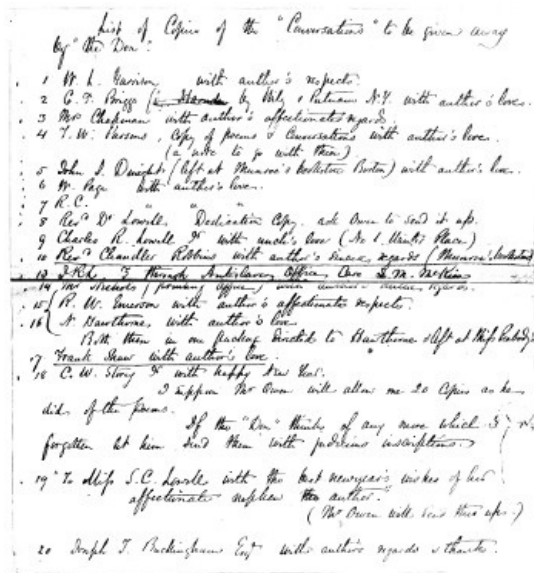 List of Copies of the "Conversations" to be given away
by "the Don".
1 W. L. Garrison with author's respects.
2 C. F. Briggs ( by Wily & Putnam N.Y. with author's love.
3 Mrs Chapman with author's affectionate regards.
4 T. W. Parsons, Copy of poems & Conversations with author's love.
(a note to go with them)
5 John S. Dwight (left at Munroe's bookstore Boston) with author's love.
6 W. Page with author's love.
7 R. C. " " "
8 Revd Dr Lowell, Dedication Copy. ask Owen to send it up.
9 Charles R. Lowell Jr with uncle's love (No 1. Place)
10 Revd Chandler Robbins with author's sincere regards (Munroe's bookstore)
13 through Antislavery Office, Care J. M. McKim
14 Mr Nichols (printing office) with author's regards.
15 R. W. Emerson with author's affectionate respects.
16 N. Hawthorne with author's love
Both these in one packet directed to Hawthorne & left at Miss Peabody's
17 Frank Shaw with author's love.
18 C. W. Story Jr with happy New Year.
I suppose Mr Owen will allow me 20 Copies as he
did of the poems.
If the "Don" thinks of any more which I
forgotten let him send them with judicious inscriptions.
19 "To Miss S. C. Lowell with the best newyear's wishes of her
affectionate nephew the author."
(Mr Owen will send this up.)
20 Joseph T. Buckingham Esqr with author's regards & thanks.